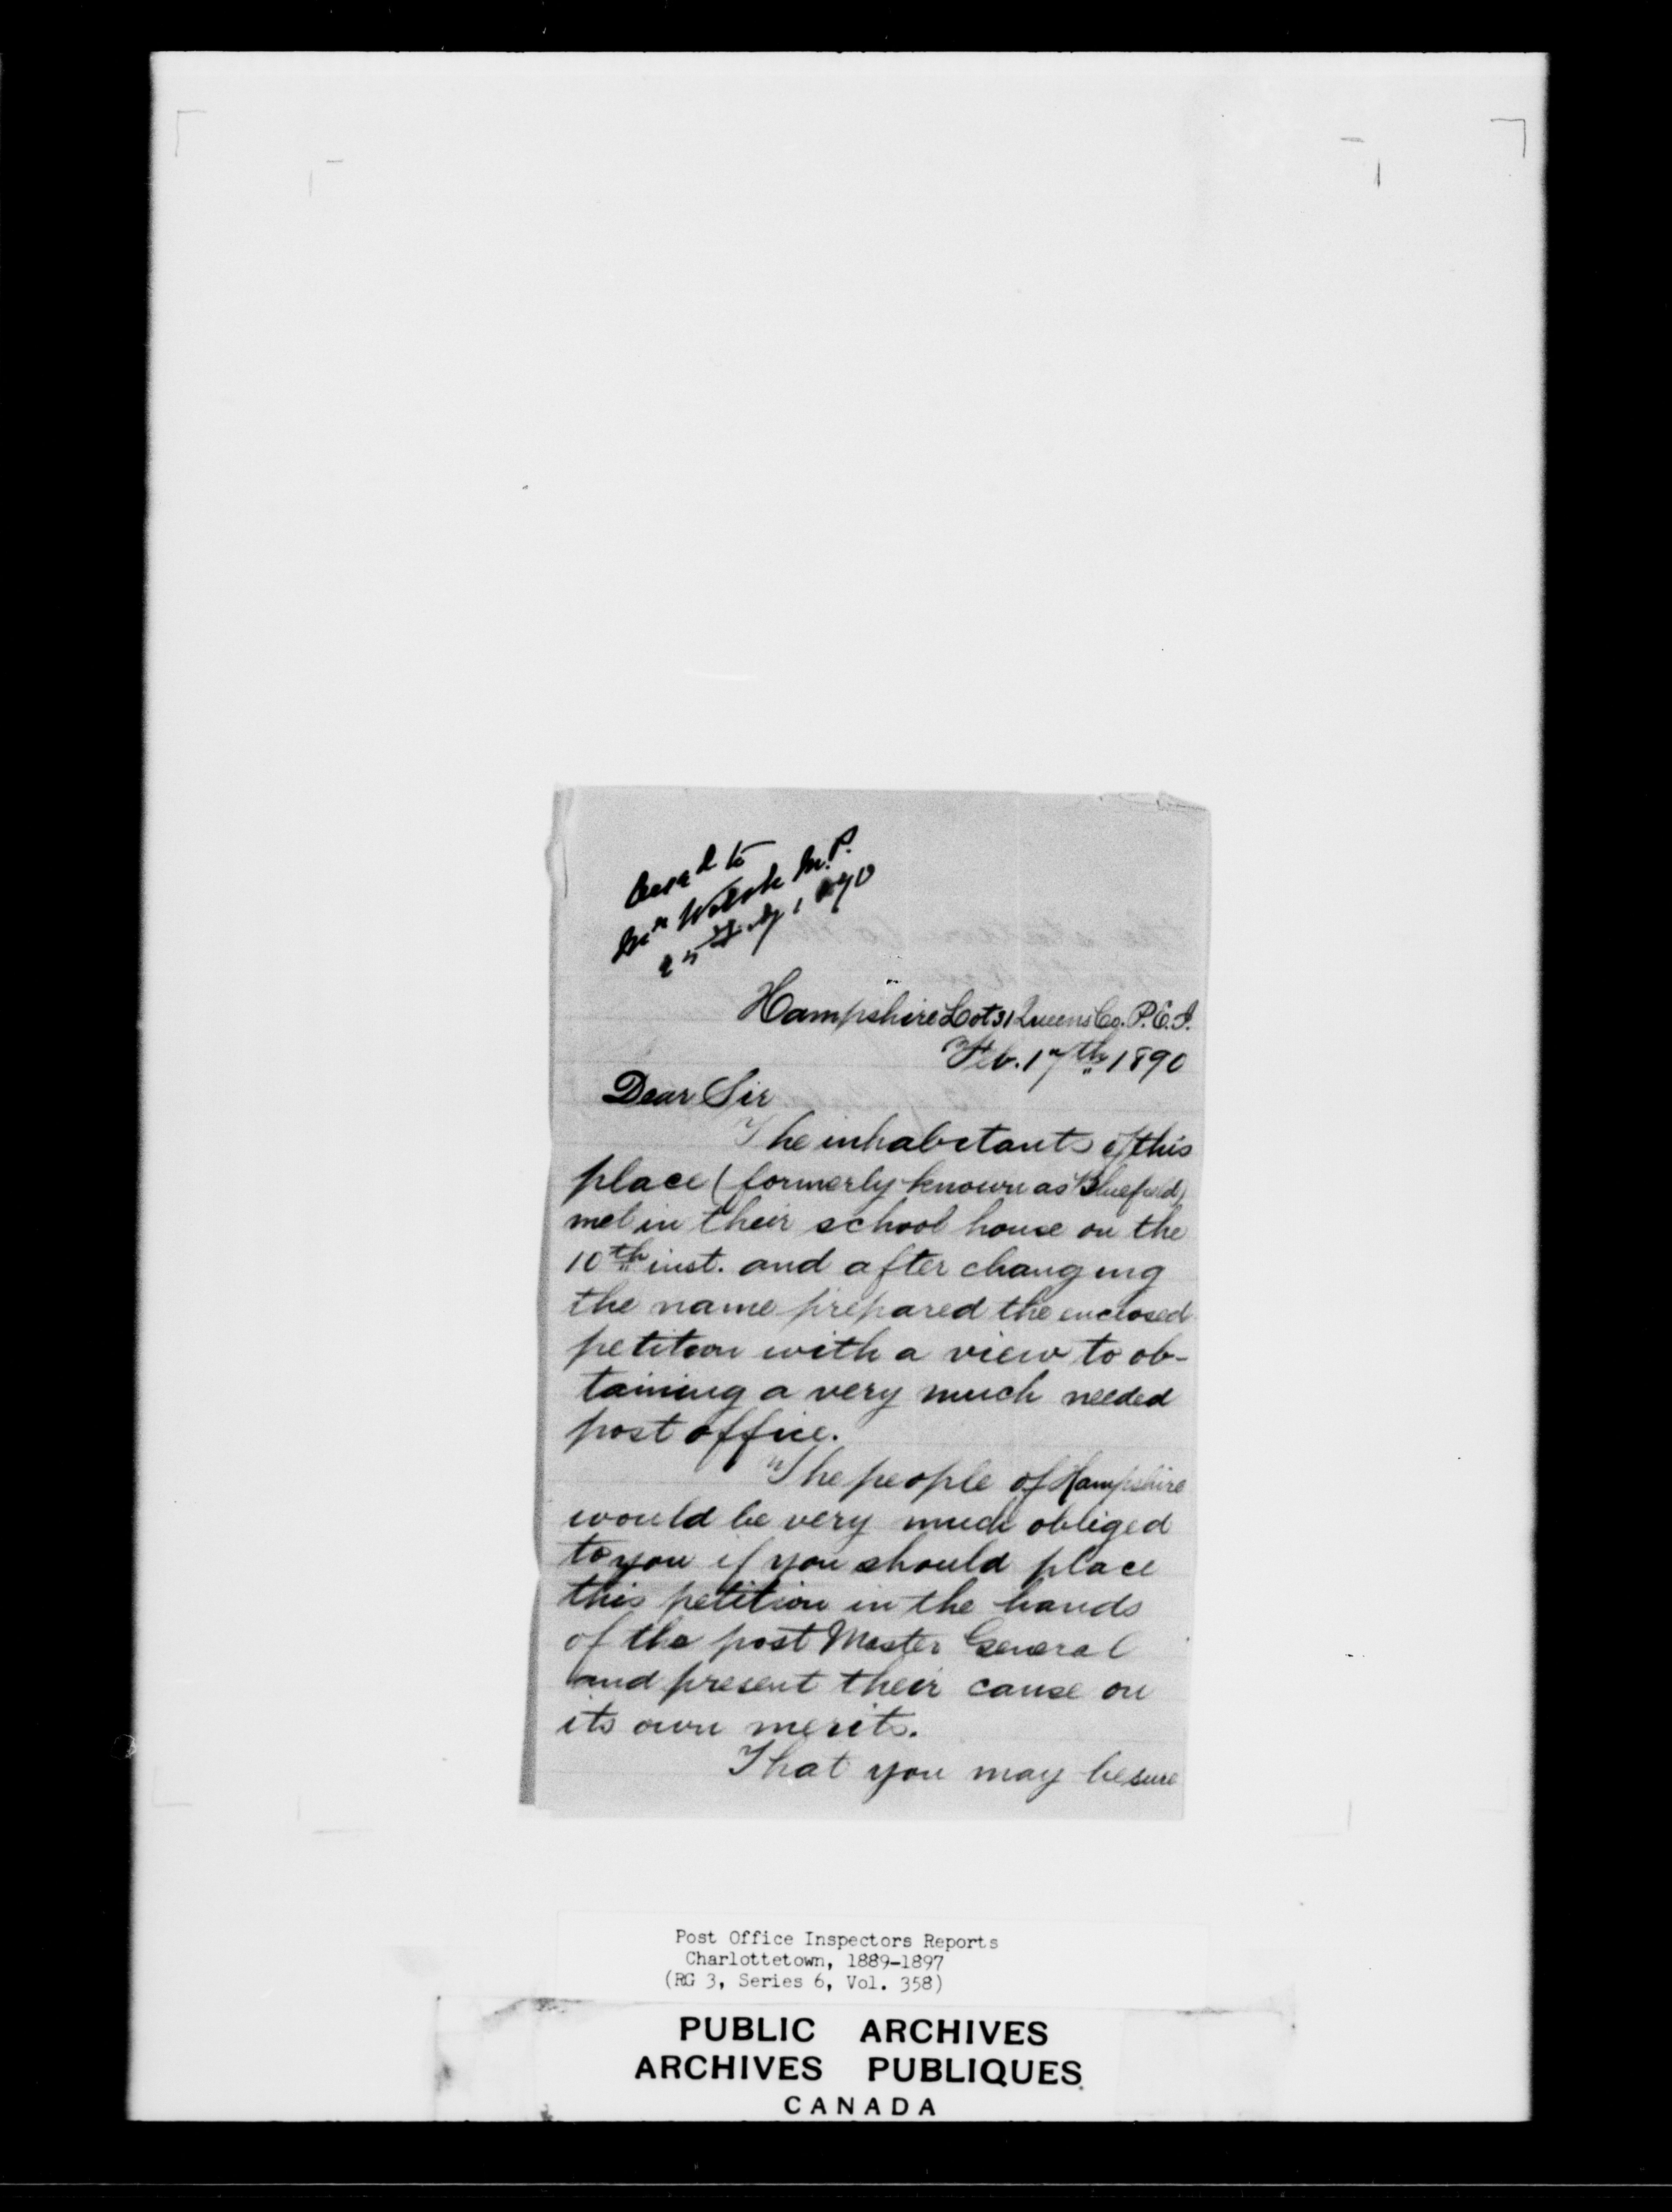 to
Mr Welsh M.P.
Hampshire Lot 31 Queens Co. P.E.I.
Feb. 17th 1890
Dear Sir
The inhabitants of this
place (formerly known as Bluefield)
met in their school house on the
10th inst. and after changing
the name prepared the enclosed
petition with a view to ob-
taining a very much needed
post office.
The people of Hampshire
would be very much obliged
to you if you should place
this petition in the hands
of the post Master General
and present their cause on
its own merits.
That you may be sure
Post Office Inspectors Reports
Charlottetown, 1889-1897
(RG 3, Series 6, Vol. 358)
PUBLIC ARCHIVES
ARCHIVES PUBLIQUES
CANADA